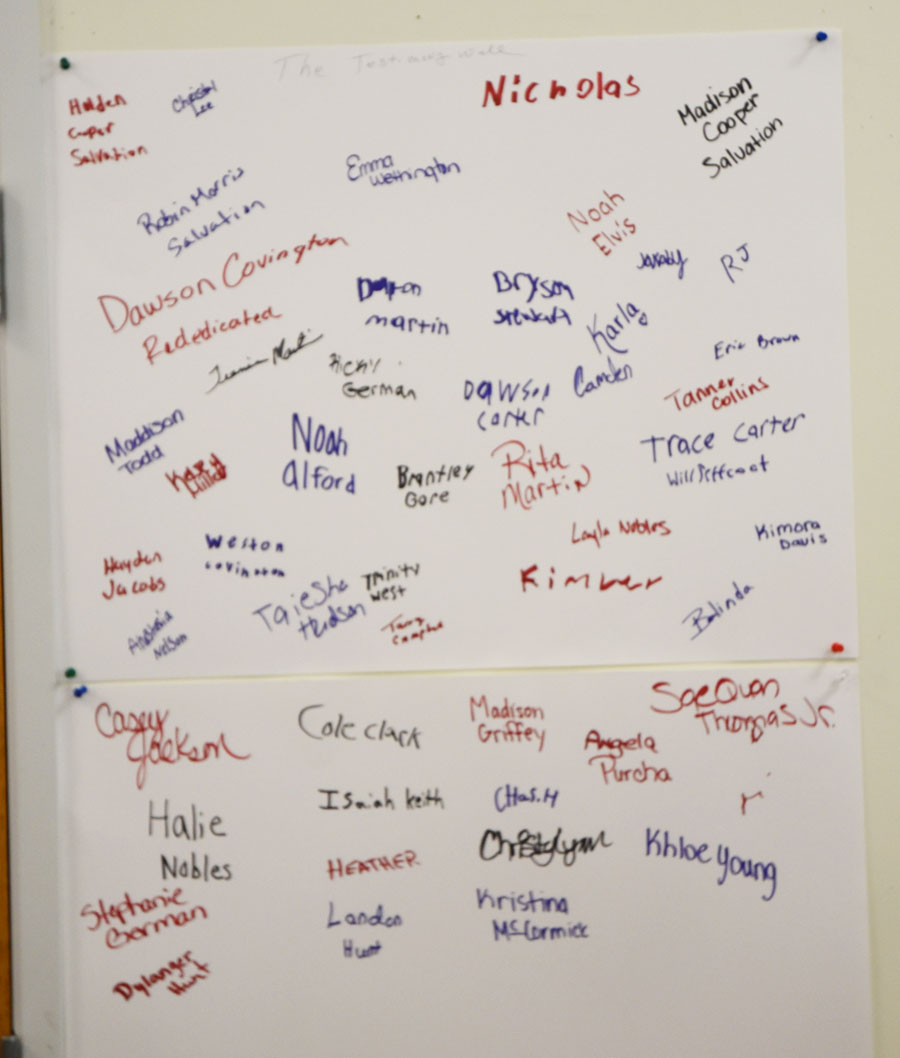 The Testimony Wall
Holden
Cooper
Salvation
Christal
Lee
Nicholas
Madison
Cooper
Salvation
Robin Morris
Salvation
Emma
Wethington
Noah
Elvis
Dawson Covington
Rededicated
Dalton
martin
Bryson
Stewart
Karla
RJ
Ricky
German
Dawson
Carter
Camden
Eric Brown
Tanner
Collins
Maddison
Todd
Noah
Alford
Brantley
Gore
Rita
Martin
Trace Carter
Will Jeffcoat
Layla Nobles
Kimora
Davis
Hayden
Jacobs
Weston
Covington
Taiesha
Hudson
Trinity
West
Kimber
Belinda
Anastasia
Nelson
Casey
Jackson
Cole Clark
Madison
Griffey
SaeQuan
Thomas Jr.
Angela
Purcha
Halie
Nobles
Isaiah Keith
CHas.H
HEATHER
Christylynn
Khloe Young
Stephanie
Gorman
Landon
Hunt
Kristina
McCormick
Dylanger
Hunt